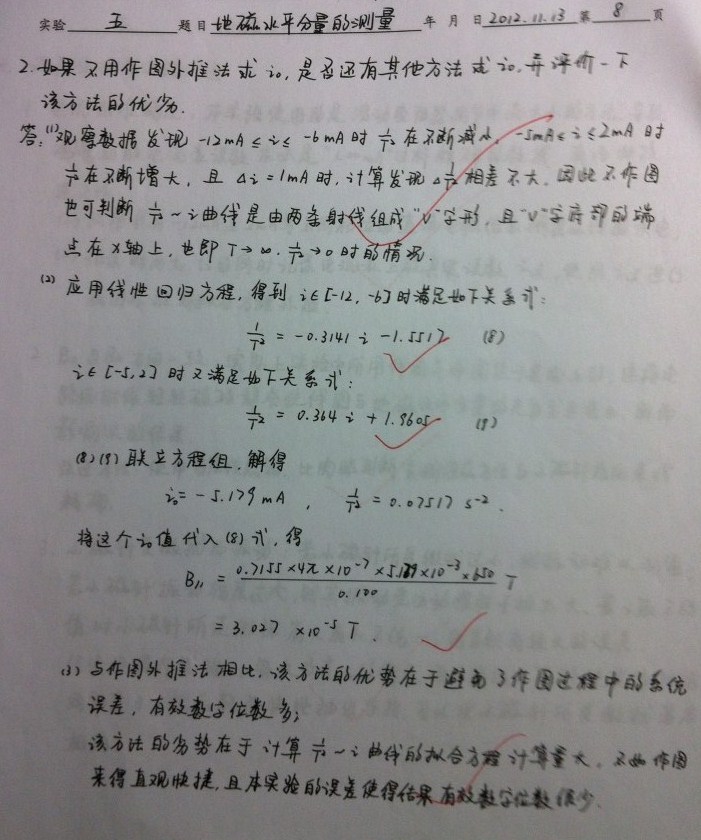 实验 五 题目 地磁水平分量的测量 年 月 日 2012.11.13 第 8 页
2. 如果不用作图外推法求 i₀, 是否还有其他方法求 i₀, 并评价一下
该方法的优劣.
答: (1) 观察数据发现 -12mA ≤ i ≤ -6mA 时 1/T² 在不断减小, -5mA ≤ i ≤ 2mA 时
1/T² 在不断增大, 且 Δi = 1mA 时, 计算发现 Δ1/T² 相差不大. 因此不作图
也可判断 1/T² ~ i 曲线是由两条射线组成 "V" 字形, 且 "V" 字底部的端
点在 x 轴上, 也即 T → ∞, 1/T² → 0 时的情况.
(2) 应用线性回归方程, 得到 i∈[-12, -6] 时满足如下关系式:
1/T² = -0.3141 i - 1.5517 (8)
i∈[-5, 2] 时又满足如下关系式:
1/T² = 0.364 i + 1.9605 (9)
(8)(9) 联立方程组, 解得
i₀ = -5.179 mA , 1/T² = 0.07517 s⁻² .
将这个 i₀ 值代入 (8) 式, 得
B∥ = 0.7155 × 4π × 10⁻⁷ × 5.179 × 10⁻³ × 650 / 0.100 T
= 3.027 × 10⁻⁵ T .
(3) 与作图外推法相比, 该方法的优势在于避免了作图过程中的系统
误差, 有效数字位数多;
该方法的劣势在于计算 1/T² ~ i 曲线的拟合方程计算量大, 不如作图
来得直观快捷, 且本实验的误差使得结果有效数字位数很少.